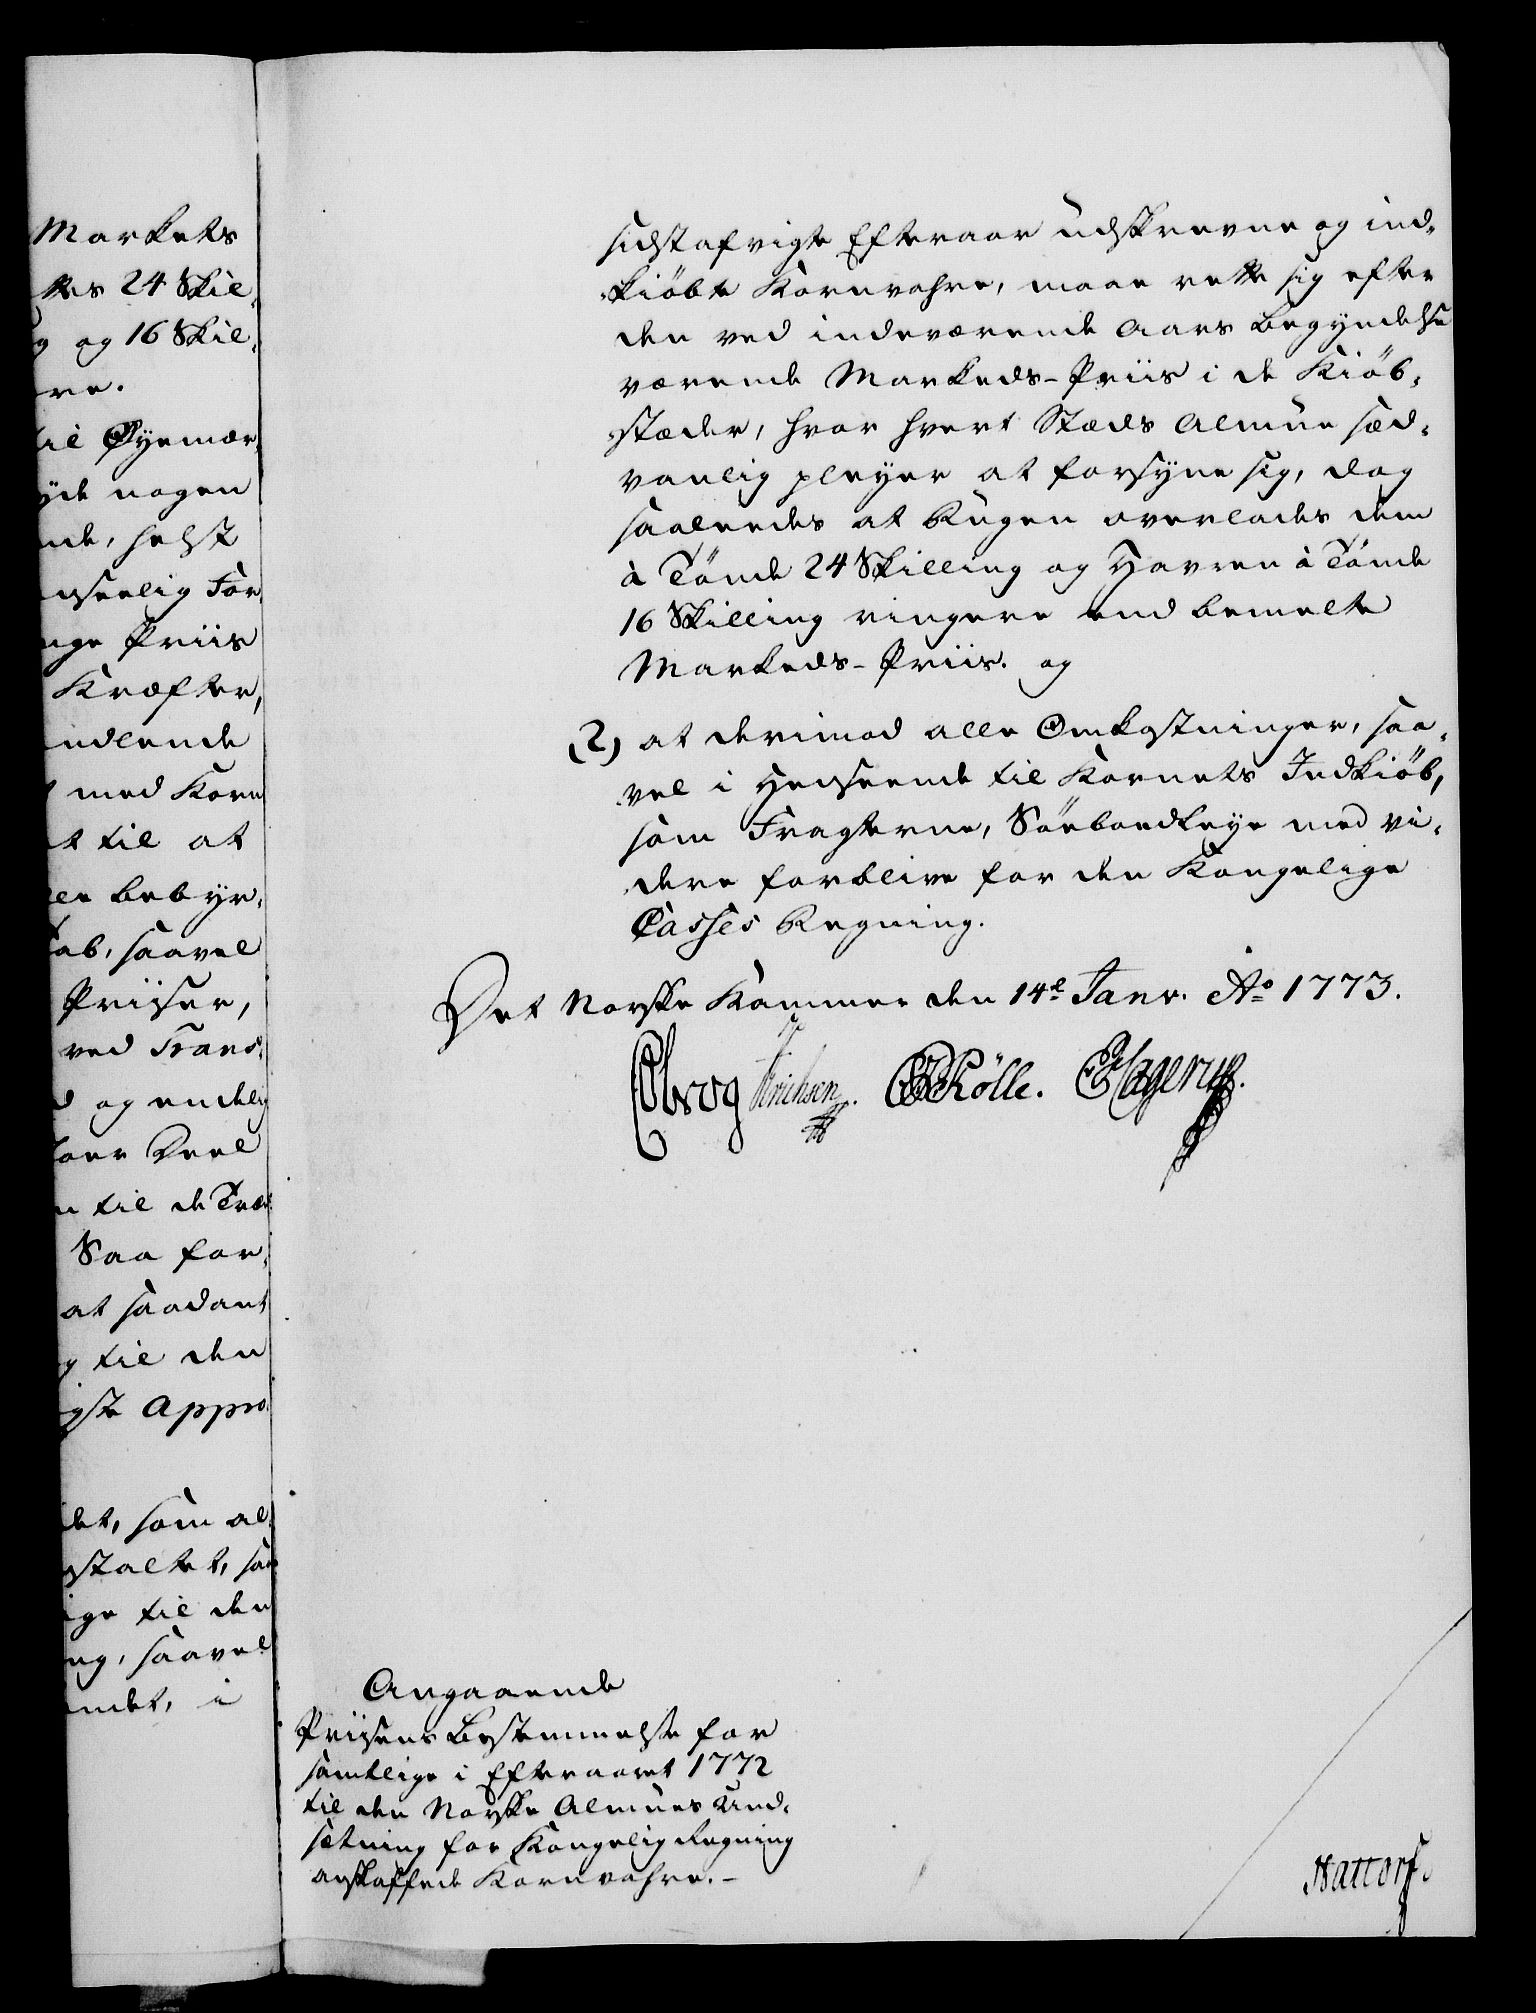 Markets
ttes 24 Skil-
og 16 Skil-
re.
til Øyemær-
yde nogen
nde, helst
nseelig For-
nge Priis
Kræfter,
ndlende
med Korn
t til at
len bebyr-
Tab, saavel
Priiser,
ved Trans-
og endelig
Deel
til de Træn-
Saa for-
at saadant
til den
gste Appro-
det, som al-
staltet, saa
ige til den
ng, saavel
ndet, i
sidstafvigte Efteraar udskrevne og ind-
kiöbte Kornvahre, maae rette sig efter
den ved indeværende Aars Begyndelse
værende Markeds-Priis i de Kiöb-
stæder, hvor hvert Stæds Almue sæd-
vanlig pleyer at forsyne sig, dog
saaleedes at Rugen overlades dem
à Tönde 24 Skilling og Havren à Tönde
16 Skilling ringere end bemelte
Markeds-Priis. og
2) at derimod alle Omkostninger, saa-
vel i Henseende til Kornets Indkiöb,
som Fragterne, Söeboedleye med vi-
dere forblive for den Kongelige
Casses Regning.
Det Norske Kammer den 14de Janv. Ao 1773.
Erichsen. Rölle. Hagerup.
Angaaende
Priisens Bestemmelse for
samtlige i Efteraaret 1772
til den Norske Almues Und-
sætning for Kongelig Regning
anskaffede Kornvahre.-
Hattorf.